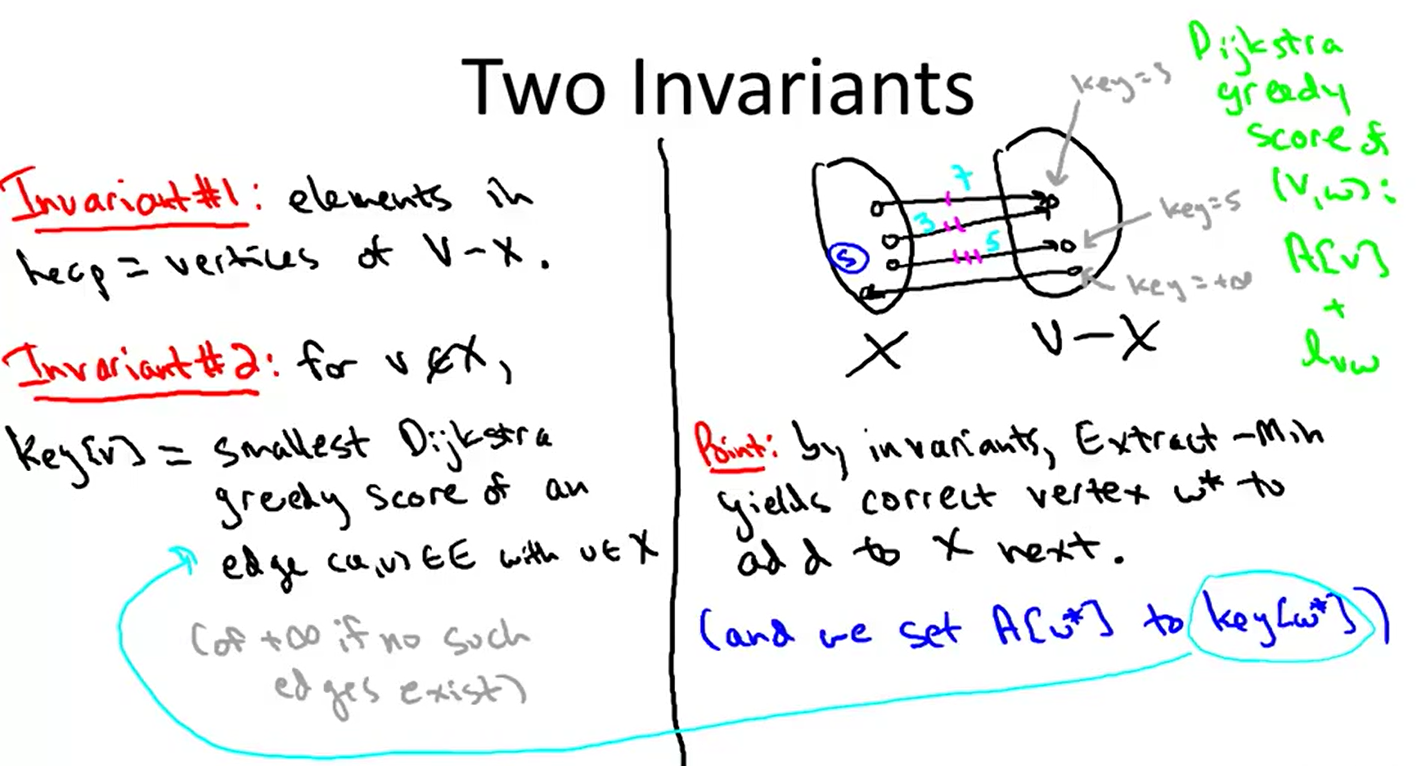 Two Invariants
Invariant #1: elements in
heap = vertices of V-X.
Invariant #2: for v∉X,
key[v] = smallest Dijkstra
greedy score of an
edge (u,v)∈E with u∈X
(of +∞ if no such
edges exist)
key=3
7
3
5
S
key=5
key=+∞
X
V-X
Dijkstra
greedy
score of
(v,w):
A[v]
+
lvw
Point: by invariants, Extract-Min
yields correct vertex w* to
add to X next.
(and we set A[w*] to key[w*])